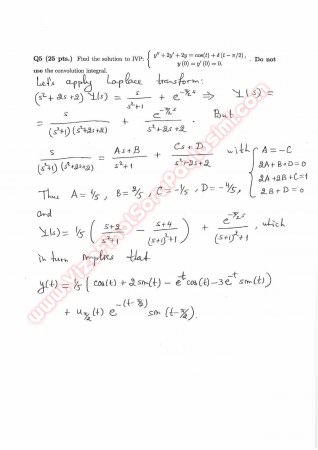 Q5 (25 pts.) Find the solution to IVP: { y'' + 2y' + 2y = cos(t) + δ(t − π/2), y(0) = y'(0) = 0. Do not
use the convolution integral.
Let's apply Laplace transform:
(s²+2s+2) Y(s) = s/(s²+1) + e^(-π/2 s) ⇒ Y(s) =
= s/((s²+1)(s²+2s+2)) + e^(-π/2 s)/(s²+2s+2). But
s/((s²+1)(s²+2s+2)) = (As+B)/(s²+1) + (Cs+D)/(s²+2s+2) with { A = -C
2A+B+D=0
2A+2B+C=1
2B+D=0
Thus A = 1/5, B = 2/5, C = -1/5, D = -4/5,
and
Y(s) = 1/5 ( (s+2)/(s²+1) - (s+4)/((s+1)²+1) ) + e^(-π/2 s)/((s+1)²+1), which
in turn implies that
y(t) = 1/5 ( cos(t) + 2 sin(t) - e^(-t) cos(t) - 3e^(-t) sin(t) )
+ u_(π/2)(t) e^(-(t-π/2)) sin(t-π/2).